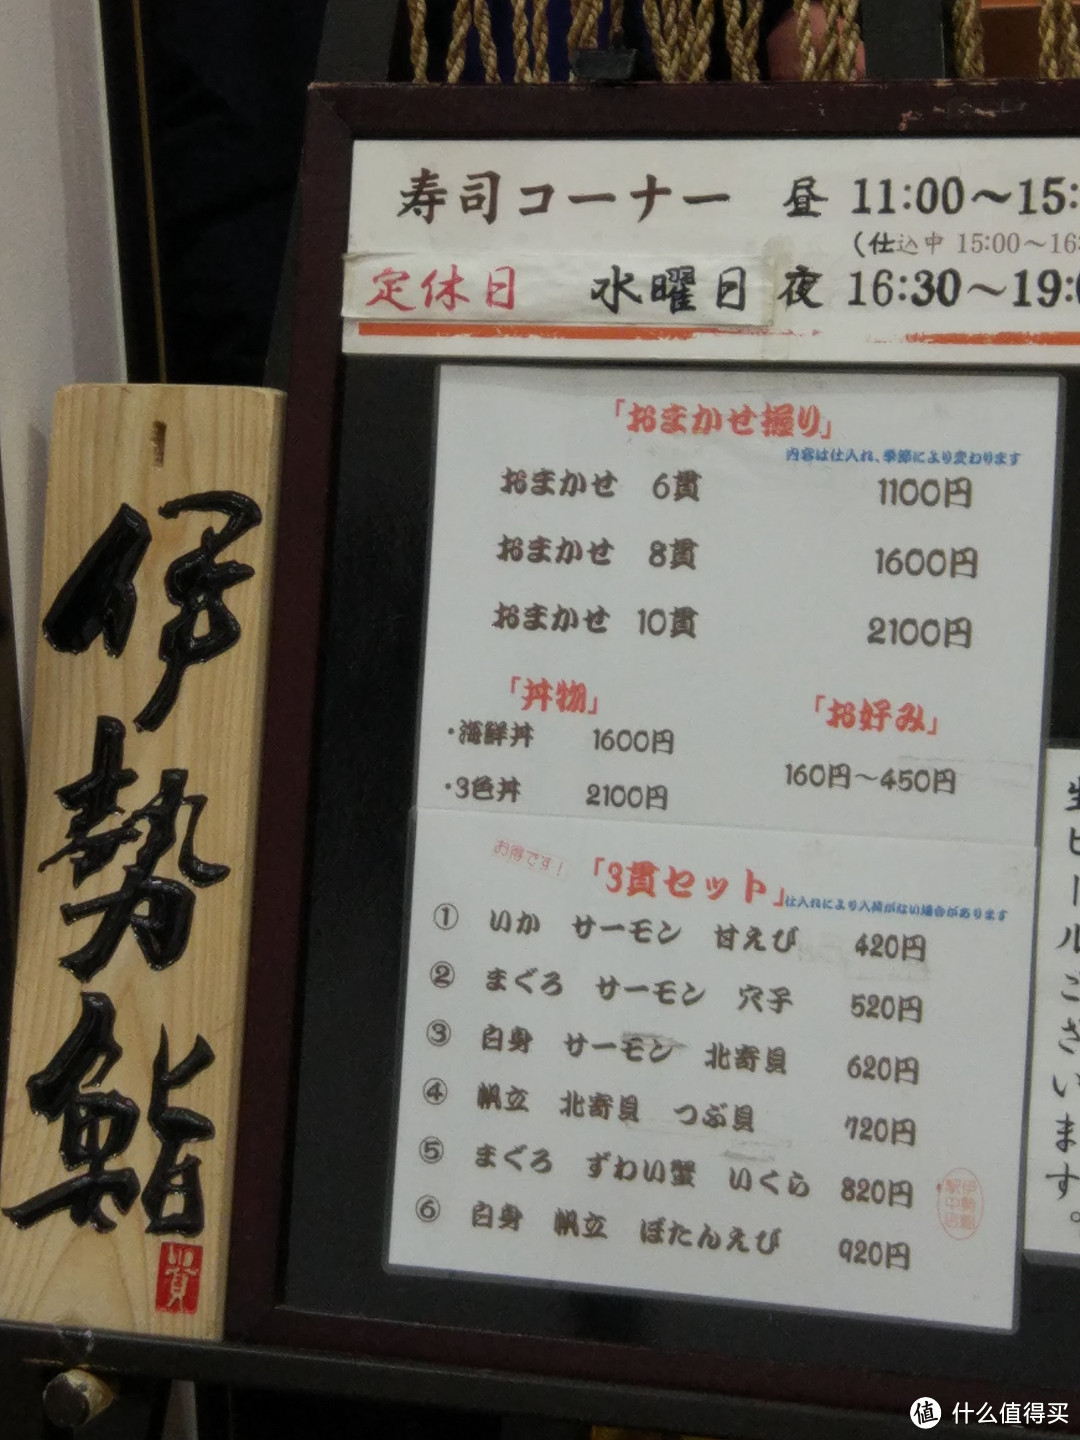 寿司コーナー 昼 11:00～15:
(仕込中 15:00～16:
定休日 水曜日 夜 16:30～19:0
「おまかせ握り」
内容は仕入れ、季節により変わります
おまかせ 6貫 1100円
おまかせ 8貫 1600円
おまかせ 10貫 2100円
「丼物」
・海鮮丼 1600円
・3色丼 2100円
「お好み」
160円～450円
お得です！
「3貫セット」
仕入れにより入荷がない場合があります
① いか サーモン 甘えび 420円
② まぐろ サーモン 穴子 520円
③ 白身 サーモン 北寄貝 620円
④ 帆立 北寄貝 つぶ貝 720円
⑤ まぐろ ずわい蟹 いくら 820円
⑥ 白身 帆立 ぼたんえび 920円
伊勢鮨
駅中店
生ビールございます。
伊勢鮨
值 什么值得买